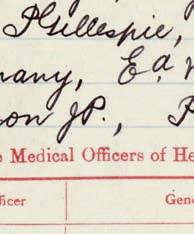 Gillespie,
many, Ed.
son J.P., P
e Medical Officers of He
ficer
Gene